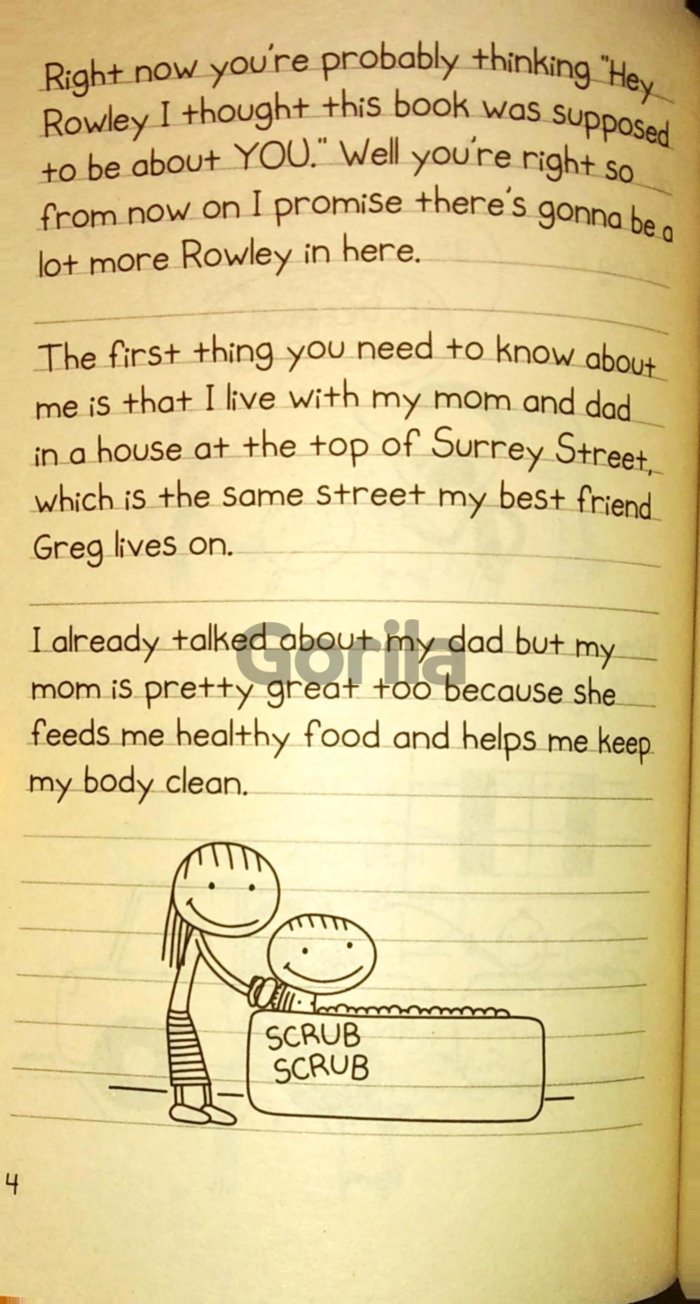 Right now you're probably thinking "Hey
Rowley I thought this book was supposed
to be about YOU." Well you're right so
from now on I promise there's gonna be a
lot more Rowley in here.
The first thing you need to know about
me is that I live with my mom and dad
in a house at the top of Surrey Street,
which is the same street my best friend
Greg lives on.
I already talked about my dad but my
Gorila
mom is pretty great too because she
feeds me healthy food and helps me keep
my body clean.
SCRUB
SCRUB
4